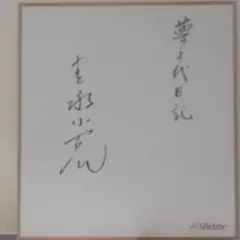 夢千代日記
吉永小百合
Victor